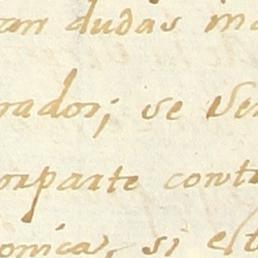 an dudas in
rador; se ve
orparte cont
onica, si est